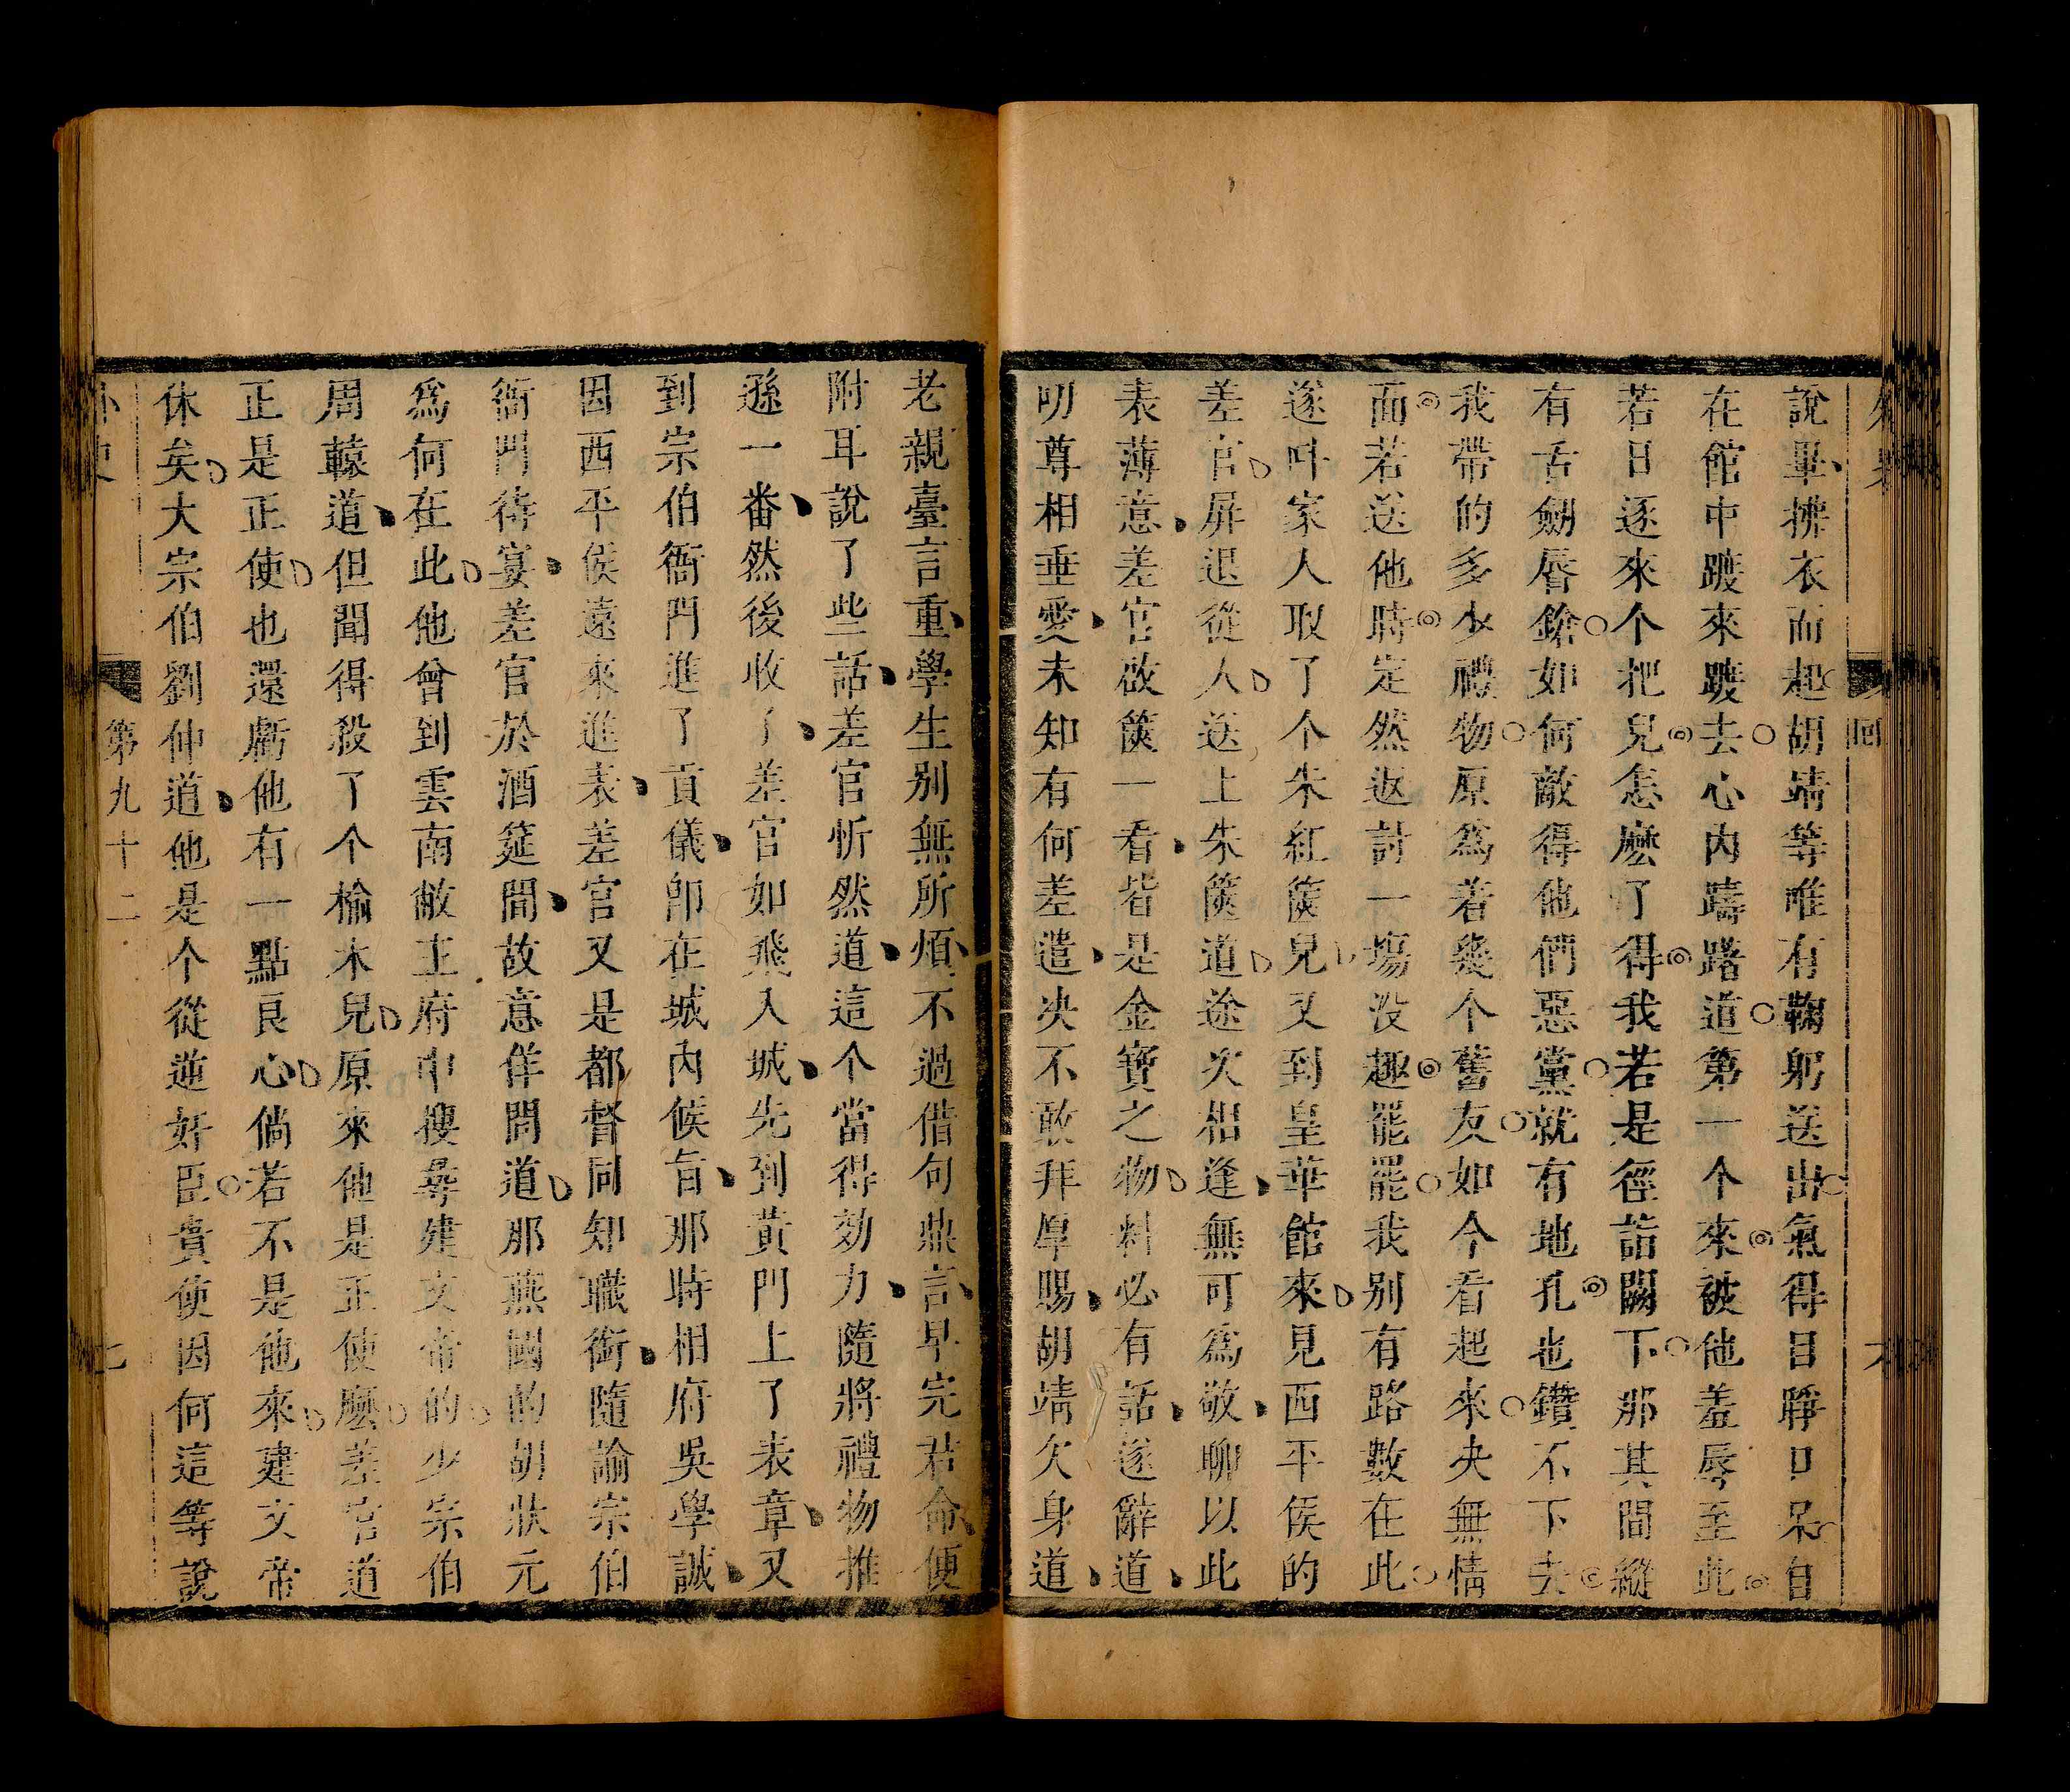 說畢拂衣而起胡靖等唯有鞠躬送出氣得目睜口呆自
在館中踱來踱去心內躊躇道第一个來被他羞辱至此
若日逐來个把兒怎麽了得我若是徑詣闕下那其間縱
有舌劒唇鎗如何敵得他們惡黨就有地孔也鑽不下去
我帶的多少禮物原爲着幾个舊友如今看起來夬無情
面若送他時定然返討一塲没趣罷罷我别有路數在此
遂呌家人取了个朱紅篋兒又到皇華館來見西平侯的
差官屏退從人送上朱篋道途次相逢無可爲敬聊以此
表薄意差官啟篋一看皆是金寶之物料必有話遂辭道
叨尊相垂愛未知有何差遣決不敢拜厚賜胡靖欠身道
老親臺言重學生别無所煩不過借句鼎言早完君命便
附耳說了些話差官忻然道這个當得効力隨將禮物推
遜一番然後收了差官如飛入城先到黃門上了表章又
到宗伯衙門進了貢儀卽在城內候旨那時相府吳學誠
因西平侯遠來進表差官又是都督同知職銜隨諭宗伯
衙門待宴差官於酒筵間故意佯問道那燕國的胡狀元
爲何在此他曾到雲南敝王府中搜尋建文帝的少宗伯
周轅道但聞得殺了个榆木兒原來他是正使麽差官道
正是正使也還虧他有一點良心倘若不是他來建文帝
休矣大宗伯劉仲道他是个從逆奸臣貴使因何這等說
第九十二
七